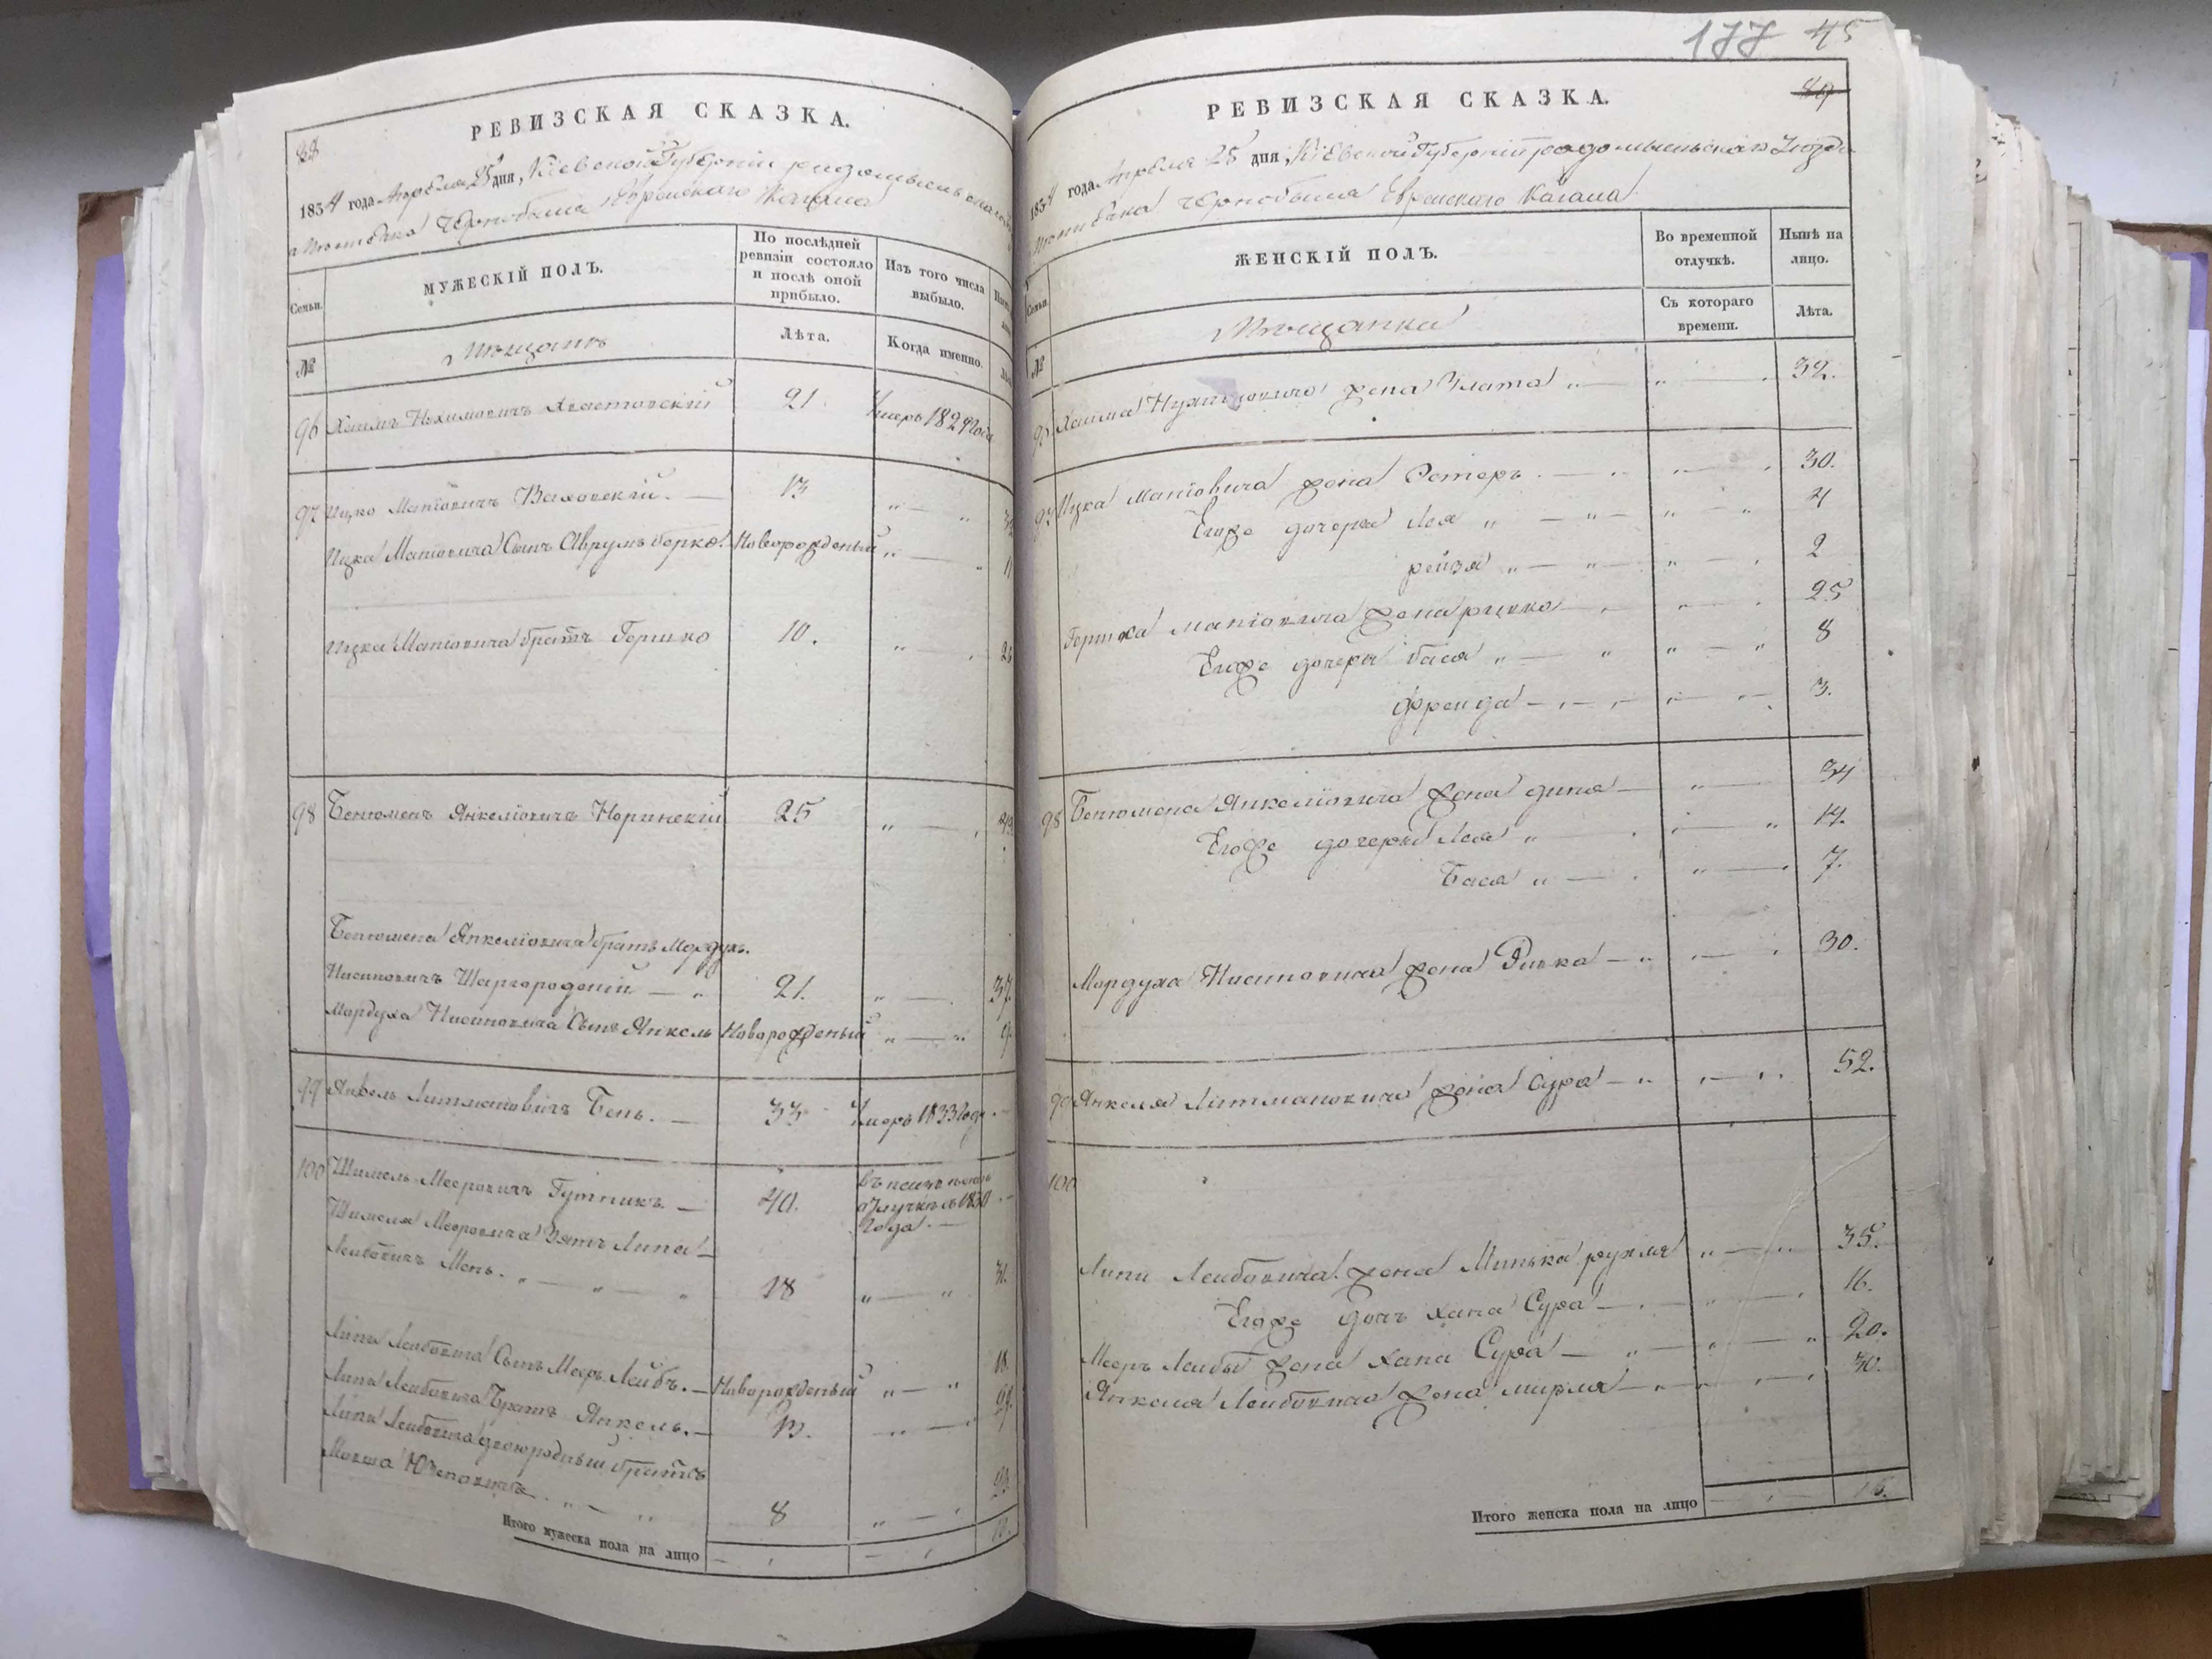 88
РЕВИЗСКАЯ СКАЗКА.
1834 года Апреля 25 дня, Кіевской Губерніи
Чернобыля Еврейского Кагала
Семьи.
МУЖЕСКІЙ ПОЛЪ.
По послѣдней ревизіи состояло и послѣ оной прибыло.
Изъ того числа выбыло.
№
Мѣщанъ
Лѣта.
Когда именно.
96 Хаимъ Нохимовичъ Хвастовскій 21 Умеръ 1829 года
97 Ицко Матіовичъ 13 " "
Ицка Матіовича Сынъ Аврумъ Берко Новорожденый " "
Ицка Матіовича братъ Гершко 10. " "
98 Бенюменъ Янкеліовичъ Норинскій 25 " "
Бенюмена Янкеліовича братъ Мордухъ.
Нисиновичъ Шаргородскій — " 21. " — 37.
Мордуха Нисиновича Сынъ Янкель Новорожденый " — " 9.
99 Янкель Литмановичъ Бень. — 33 Умеръ 1833 года —
100 Шимель Мееровичъ Гутникъ. — 40. 1830 года. —
Шимеля Мееровича Зять Липа —
Лейбовичъ Мень. " — " " 18 " " 31.
Липы Лейбовича Сынъ Мееръ Лейбъ. — Новорожденый " — " 18.
Липы Лейбовича Братъ Янкель. — 13. " — " 29.
Липы Лейбовича двоюродный братъ
Мовша 8 " — "
Итого мужеска пола на лицо — " — "
177 45
89
РЕВИЗСКАЯ СКАЗКА.
1834 года Апреля 25 дня, Кіевской Губерніи радомысльскаго Уезда
Чернобыля Еврейскаго Кагала
Семьи.
ЖЕНСКІЙ ПОЛЪ.
Во временной отлучкѣ.
Нынѣ на лицо.
№
Мѣщанки
Съ котораго времени.
Лѣта.
Хаима жена Злата " — " — 32.
97 Ицка Матіовича жена Эстеръ. — " " — 30.
Егоже дочери Лея " — " — " — " 4
рейзя " — " " — 2
Гершка Матіовича жена ривка — " " — 25
Егоже дочери бася " — " " — " 8
фрейда — " — " " — 3.
98 Бенюмена Янкеліовича жена дина — " — 34
Егоже дочери Лея " " — " 14.
Бася " — " — 7.
Мордуха Нисиновича жена Ривка — " " — 30.
99 Янкеля Литмановича жена Сура — " " — " 52.
100
Липи Лейбовича жена Минька рухля " — " 35.
Егоже дочь хана Сура — " — 16.
Мееръ Лейбы жена хана Сура — " — " — " 20.
Янкеля Лейбовича жена мирля — " — " 30.
Итого женска пола на лицо — " — 16.